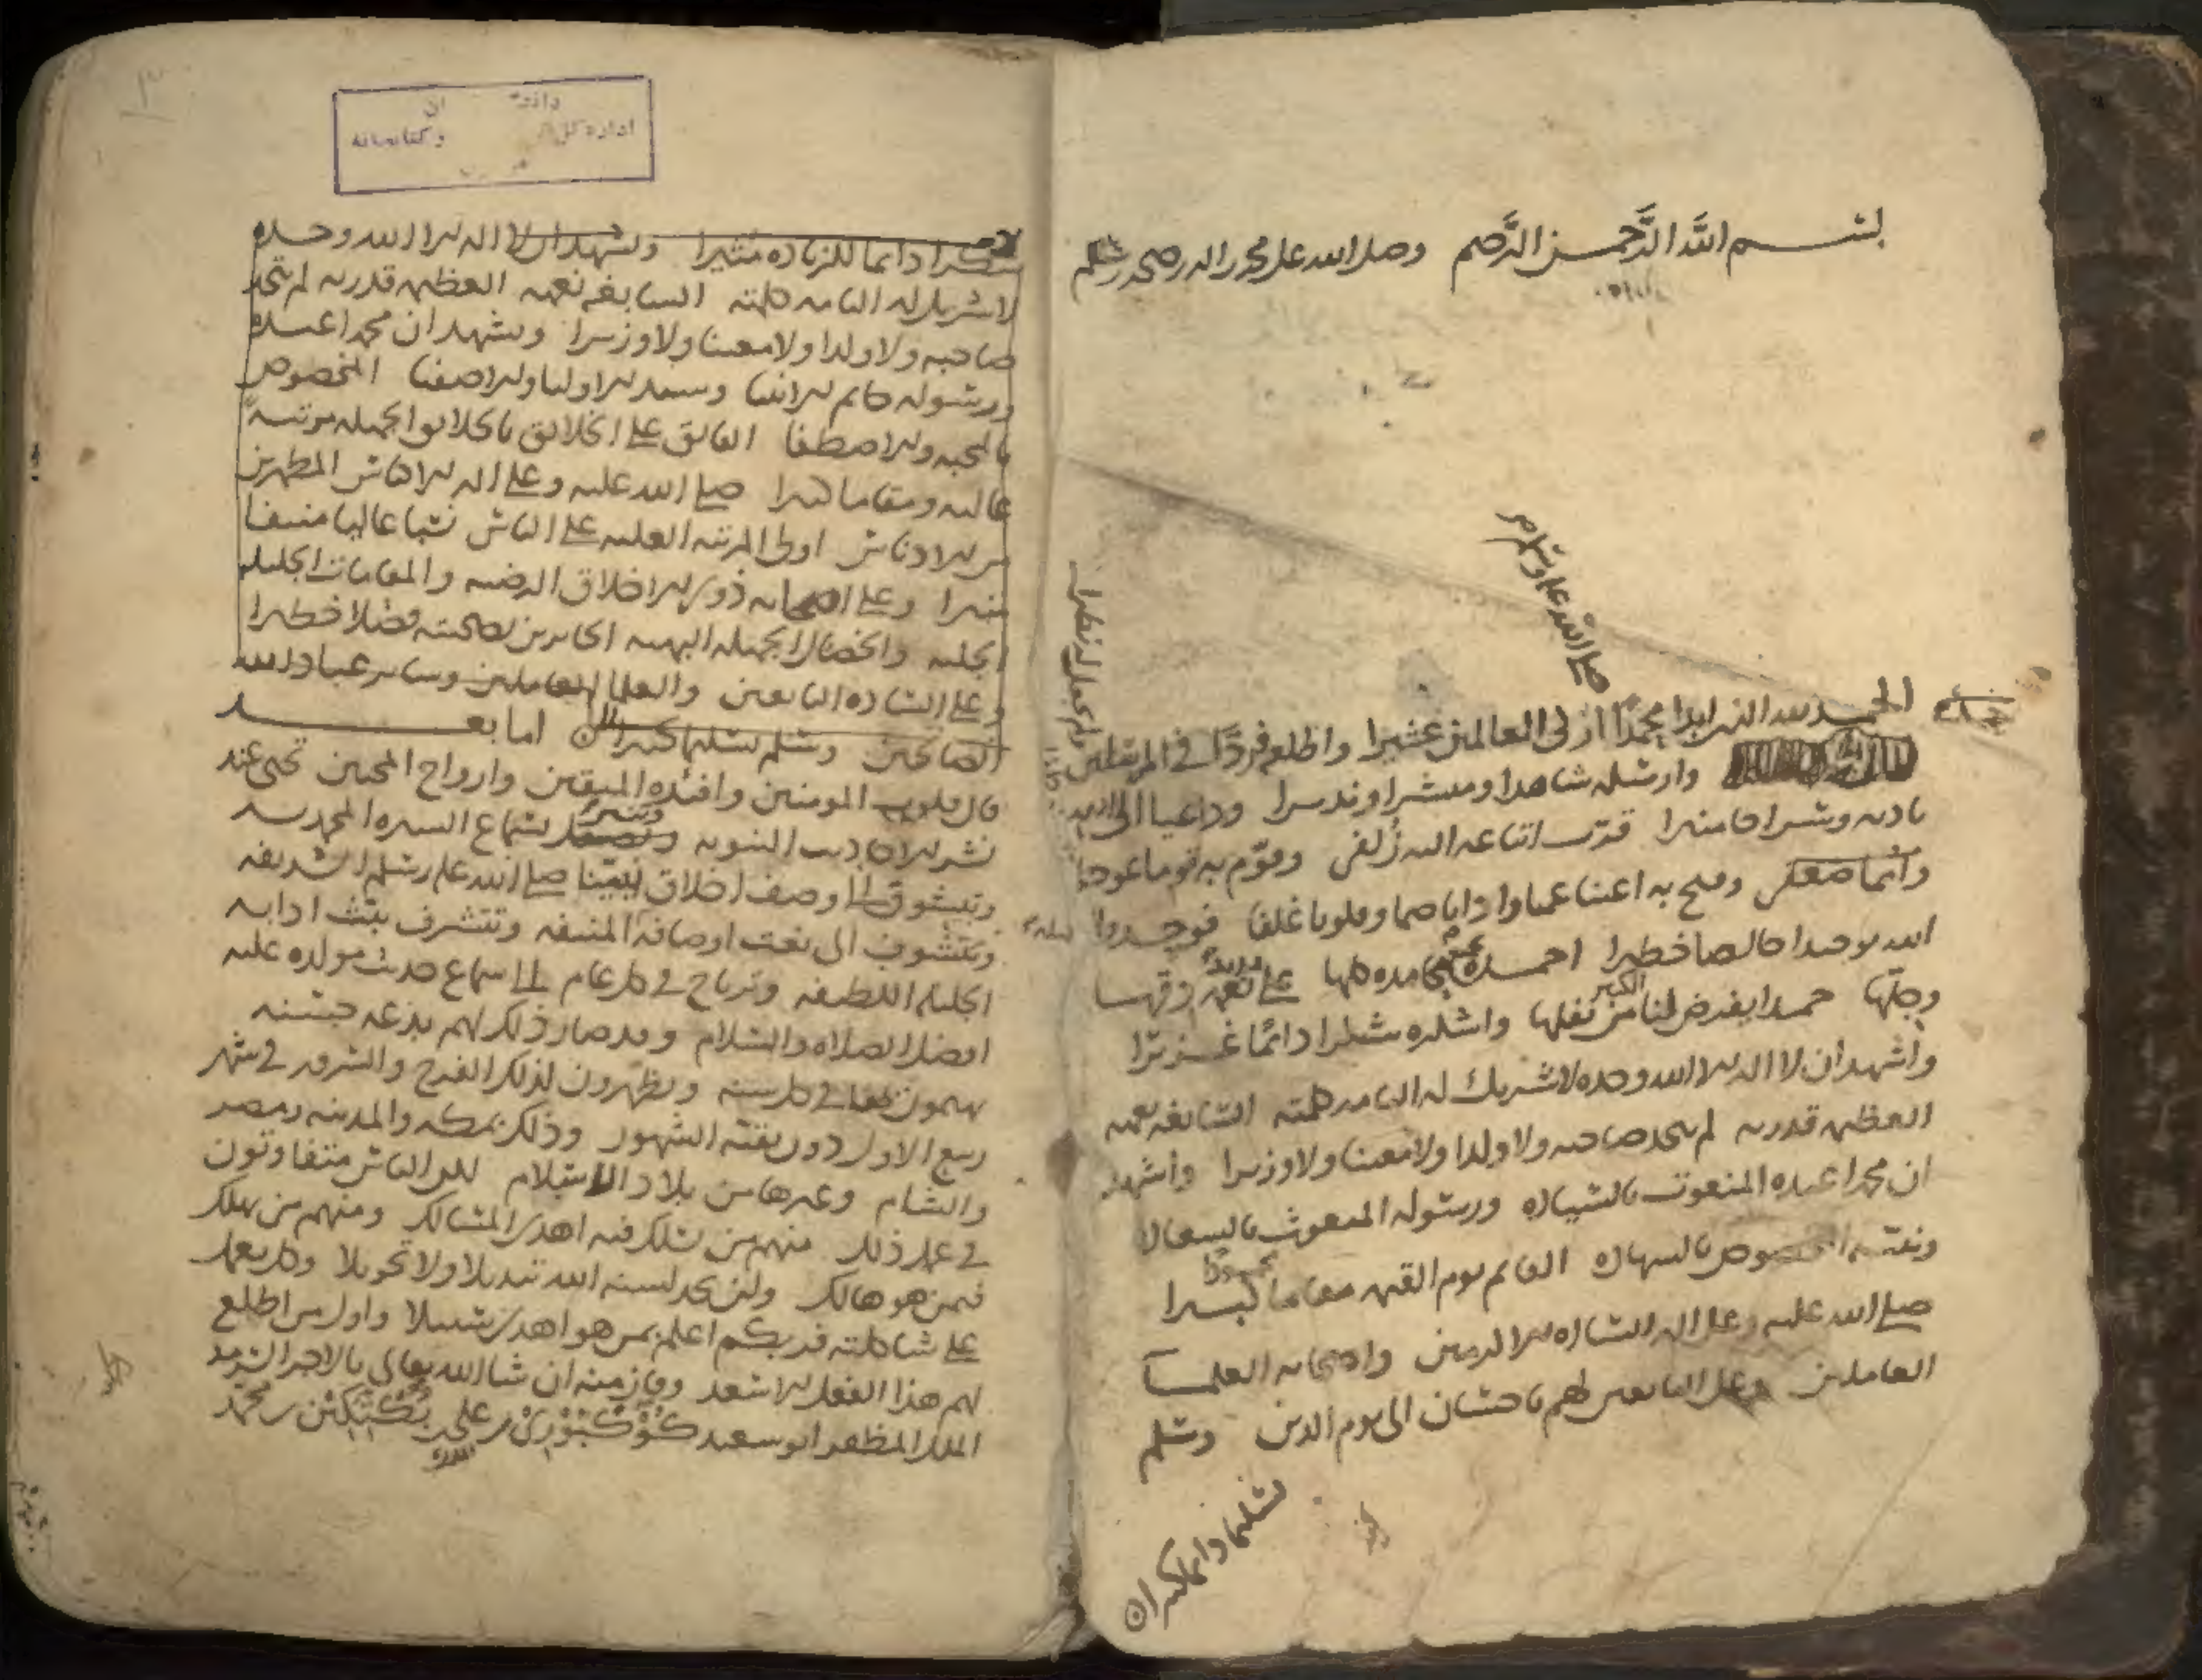 بسم الله الرحمن الرحيم وصلى الله على محمد واله وصحبه وسلم
صلى الله عليه وسلم
الحمد لله الذي ابدا محمدا ازلى العالمين عشيرا واطلعه فردا في المرسلين
ولم يجعل له نظيرا
وارسله شاهدا ومبشرا ونذيرا وداعيا الى الله
باذنه وسراجا منيرا قرب اتباعه اليه زلفى وقوم به قوما عوجا
وفتح به اعينا عميا واذانا صما وقلوبا غلفا فوحدوا
الله توحيدا خالصا خطيرا احمده بمحامده كلها على نعمه دقها
وجلها حمدا يفرض لنا من نفلها واشكره شكرا دائما غزيرا
واشهد ان لا اله الا الله وحده لا شريك له التامه كلمته السابغه نعمه
العظيمه قدرته لم يتخذ صاحبه ولا ولدا ولا معينا ولا وزيرا واشهد
ان محمدا عبده المنعوت بالسياده ورسوله المبعوث بالسعاده
المخصوص بالشهاده القائم يوم القيمه مقاما كبيرا
محمودا
صلى الله عليه وعلى اله الساده الاكرمين واصحابه العلماء
العاملين وعلى التابعين لهم باحسان الى يوم الدين وسلم
تسليما دائما كثيرا
شكرا دائما للزياده مثيرا ونشهد ان لا اله الا الله وحده
لا شريك له التامه كلمته السابغه نعمه العظيمه قدرته لم يتخذ
صاحبه ولا ولدا ولا معينا ولا وزيرا ونشهد ان محمدا عبده
ورسوله خاتم الانبيا وسيد الاوليا والاصفيا المخصوص
بالمحبه والاصطفا الفائق على الخلائق بالخلائق الجميله مرتبة
عاليه ومقاما كبيرا صلى الله عليه وعلى اله الاكياس المطهرين
من الادناس اولى المرتبه العليه على الناس نسبا عاليا منيفا
منيرا وعلى اصحابه ذوي الاخلاق الرضيه والمقامات الجليله
الجليه والخصال الجميله البهيه الحائزين بصحبته فضلا خطيرا
وعلى الساده التابعين والعلما العاملين وسائر عباد الله
الصالحين وسلم تسليما كثيرا اما بعد
فان قلوب المومنين وافئده الموقنين وارواح المحبين تحيى عند
نشر الاحاديث النبويه وتسر بسماع السيره المحمديه
وتتشوق الى وصف اخلاق نبينا صلى الله عليه وسلم الشريفه
وتتشوف الى نعت اوصافه المنيفه وتتشرف ببث ادابه
الجليله اللطيفه وترتاح في كل عام الى سماع حديث مولده عليه
افضل الصلاه والسلام وقد صار ذلك لهم بدعه حسنه
يهتمون بفعلها في كل سنه ويظهرون لذلك الفرح والسرور في شهر
ربيع الاول دون بقية الشهور وذلك بمكه والمدينه ومصر
والشام وغيرها من بلاد الاسلام لكن الناس متفاوتون
في عمل ذلك منهم من سلك فيه اهدى المسالك ومنهم من يهلك
فيمن هو هالك ولن تجد لسنه الله تبديلا ولا تحويلا وكل يعمل
على شاكلته فربكم اعلم بمن هو اهدى سبيلا واول من اطلع
لهم هذا الفعل الاسعد وفاز منه ان شا الله تعالى بالاجر السرمد
الملك المظفر ابو سعيد كوكبوري بن علي بن بكتكين بن محمد